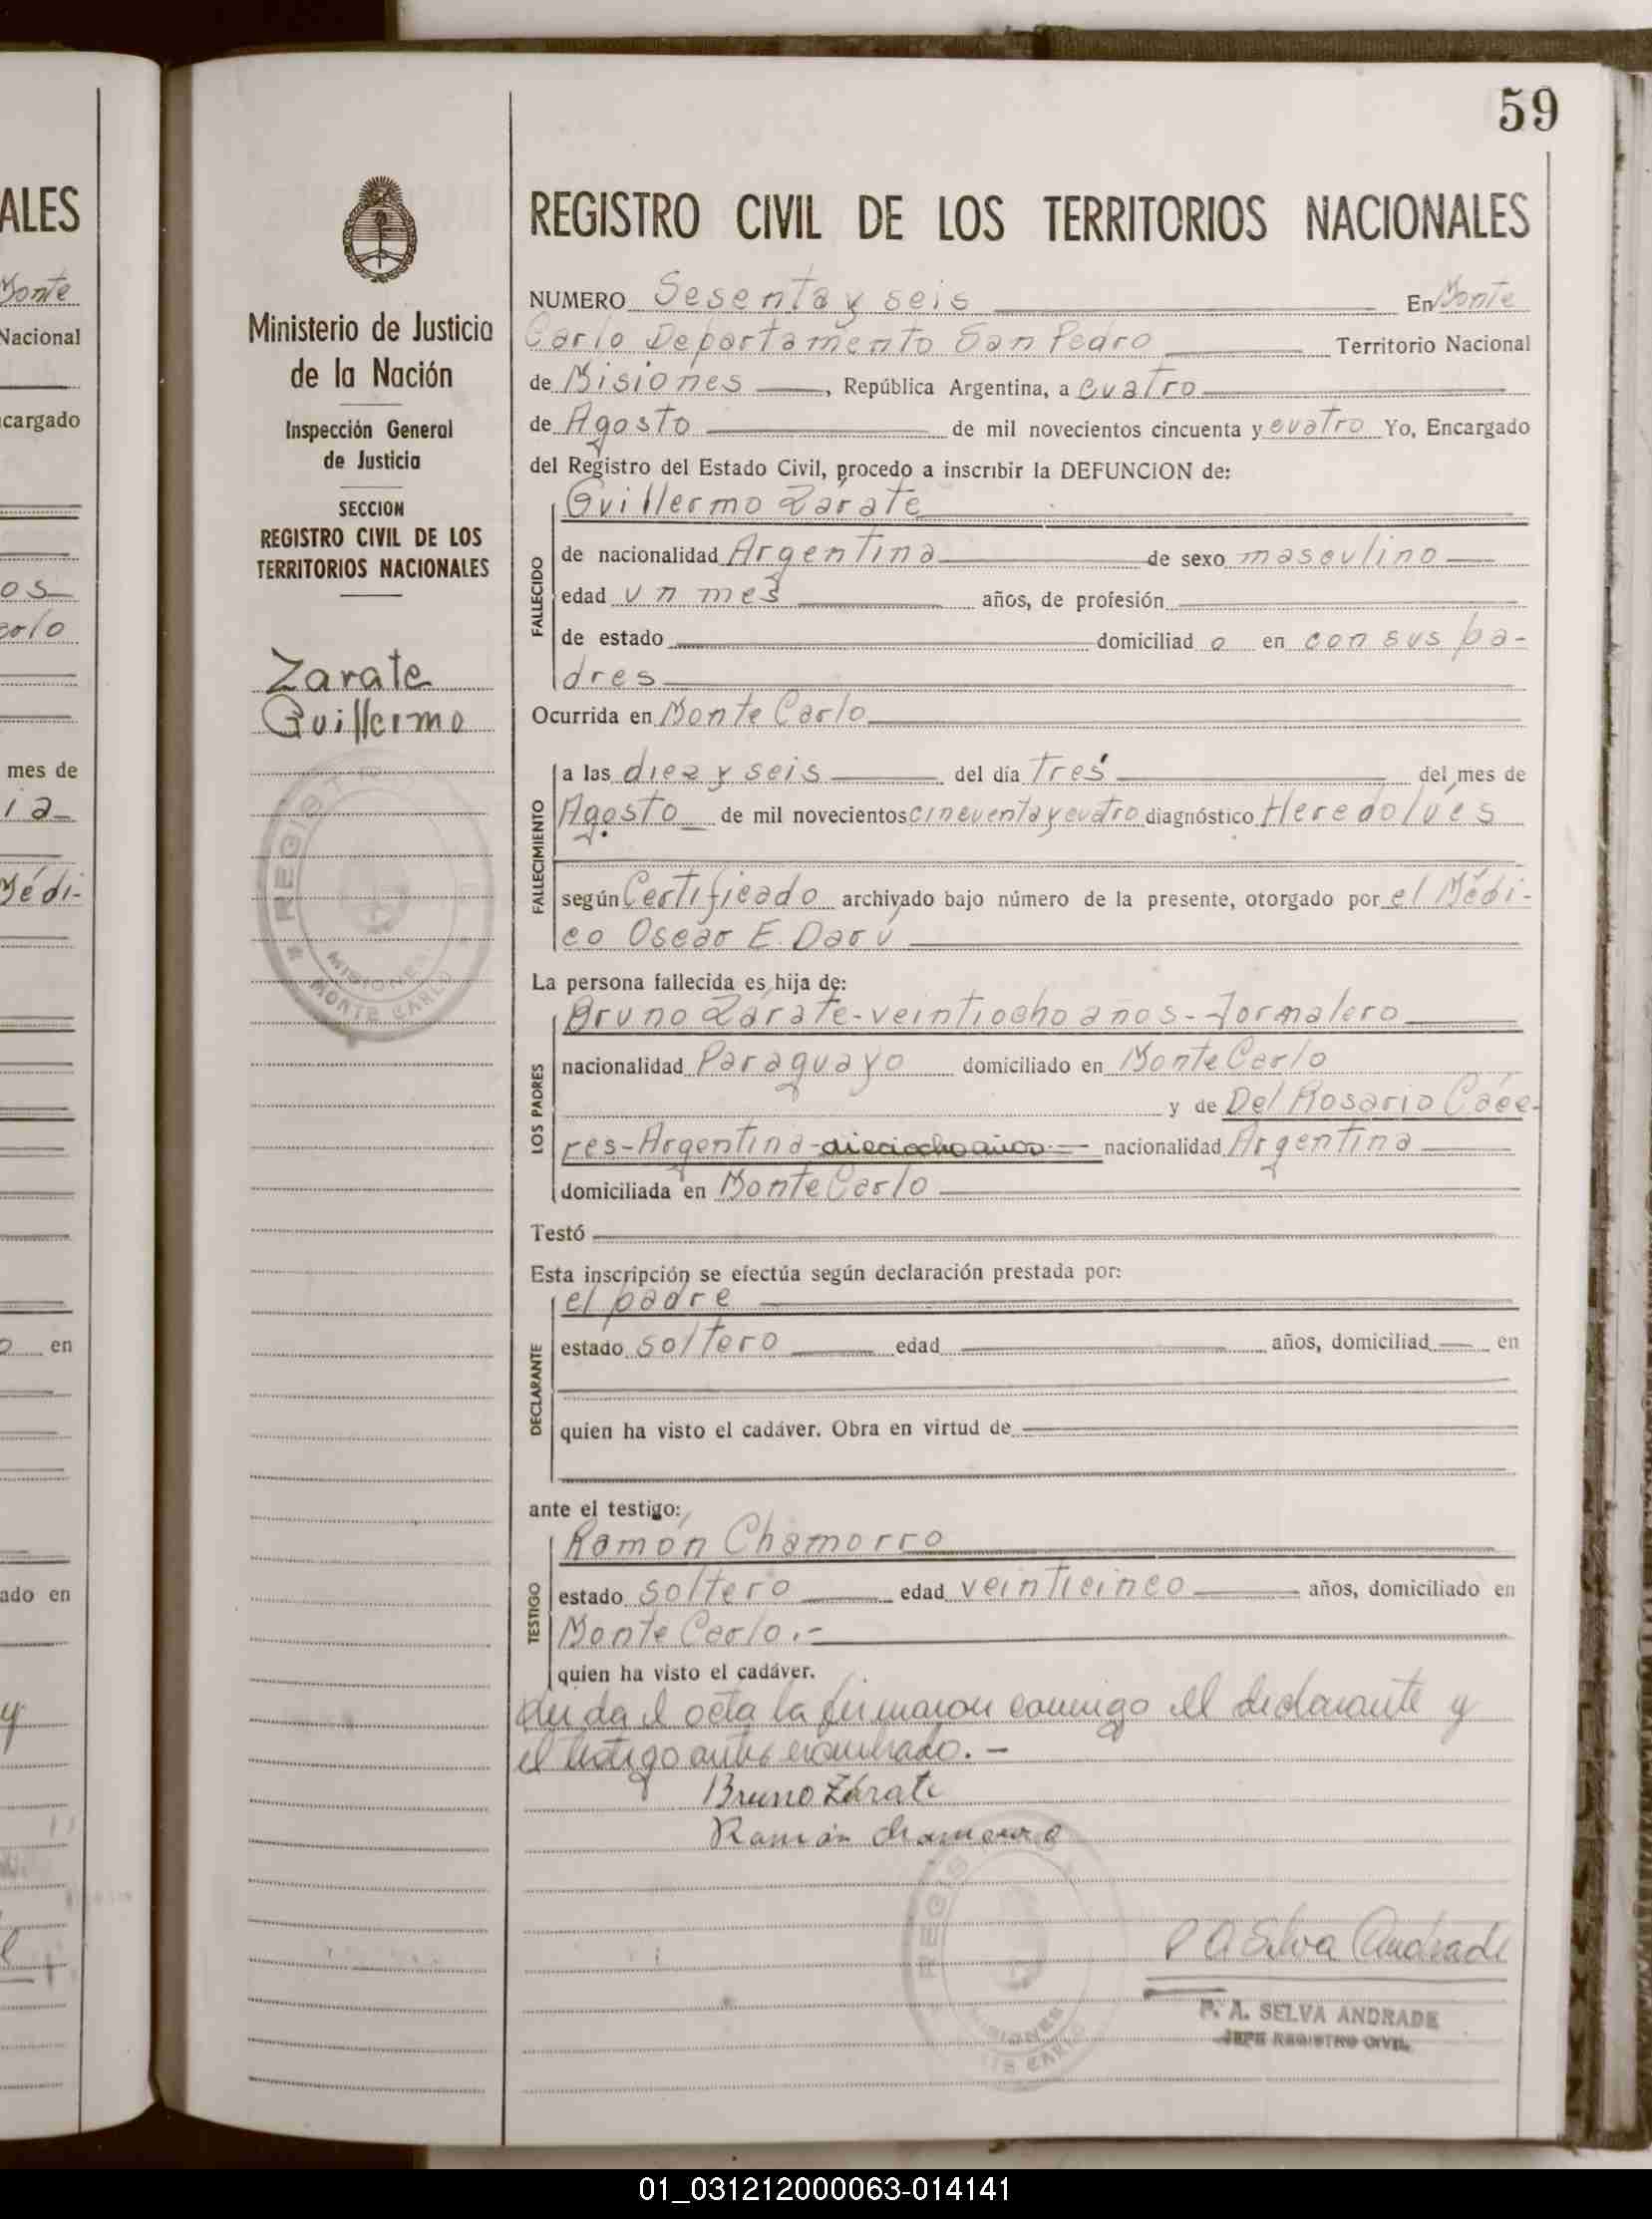 59
ALES
Monte
Nacional
cargado
os
mes de
ia
Médi-
en
ado en
y
Ministerio de Justicia
de la Nación
Inspección General
de Justicia
SECCION
REGISTRO CIVIL DE LOS
TERRITORIOS NACIONALES
Zarate
Guillermo
REGIST
MISIONES
MONTE CARLO
REGISTRO CIVIL DE LOS TERRITORIOS NACIONALES
NUMERO Sesenta y seis En Monte
Carlo Departamento San Pedro Territorio Nacional
de Misiones, República Argentina, a cuatro
de Agosto de mil novecientos cincuenta y cuatro Yo, Encargado
del Registro del Estado Civil, procedo a inscribir la DEFUNCION de:
Guillermo Zárate
FALLECIDO
de nacionalidad Argentina de sexo masculino
edad un mes años, de profesión
de estado domiciliad o en con sus pa-
dres
Ocurrida en Monte Carlo
FALLECIMIENTO
a las diez y seis del día tres del mes de
Agosto de mil novecientos cincuenta y cuatro diagnóstico Heredolués
según Certificado archivado bajo número de la presente, otorgado por el Médi-
co Oscar E. Darú
La persona fallecida es hija de:
LOS PADRES
Bruno Zárate-veintiocho años-Jornalero
nacionalidad Paraguayo domiciliado en Monte Carlo
y de Del Rosario Cáce-
res-Argentina-dieciocho años.- nacionalidad Argentina
domiciliada en Monte Carlo
Testó
Esta inscripción se efectúa según declaración prestada por:
DECLARANTE
el padre
estado soltero edad años, domiciliad en
quien ha visto el cadáver. Obra en virtud de
ante el testigo:
TESTIGO
Ramón Chamorro
estado soltero edad veinticinco años, domiciliado en
Monte Carlo.-
quien ha visto el cadáver.
Leida el acta la firmaron conmigo el declarante y
el testigo antes nombrado.-
Bruno Zárate
Ramón Chamorro
REGIS
MISIONES
P A Selva Andrade
P. A. SELVA ANDRADE
JEFE REGISTRO CIVIL
01_031212000063-014141